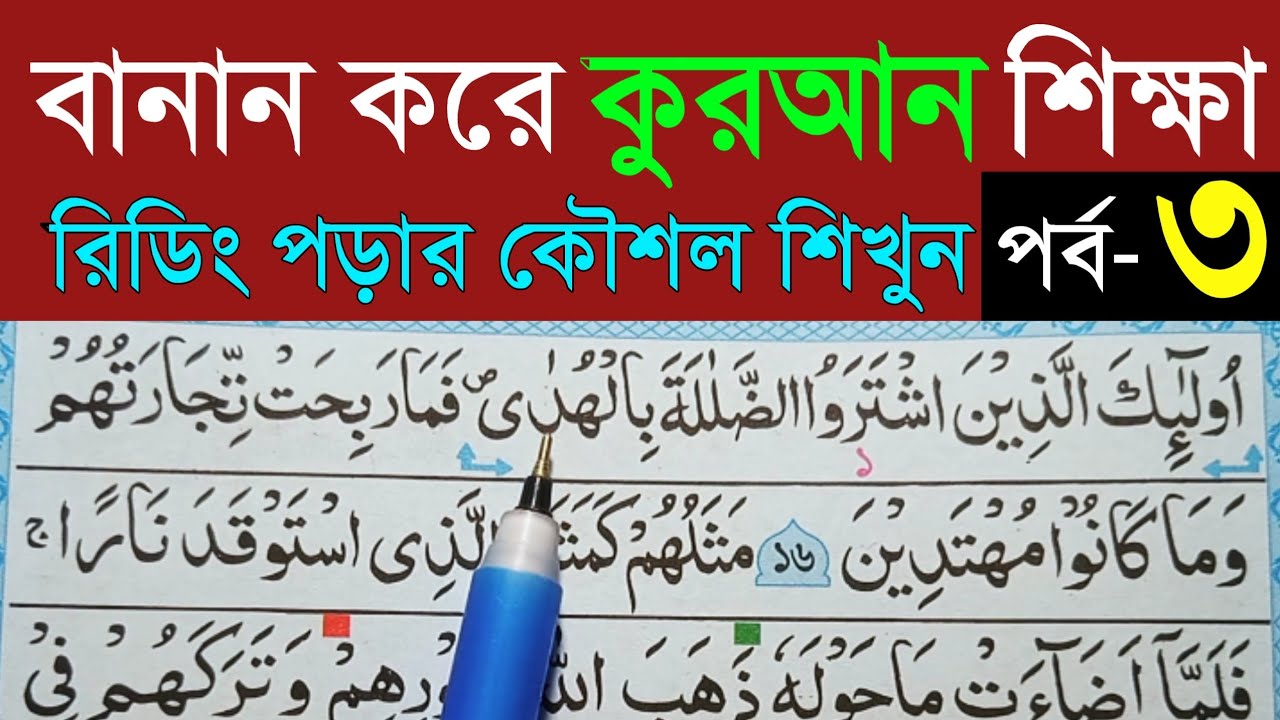 বানান করে কুরআন শিক্ষা
রিডিং পড়ার কৌশল শিখুন পর্ব-৩
اُولٰٓئِكَ الَّذِيْنَ اشْتَرَوُا الضَّلٰلَةَ بِالْهُدٰى ۪ فَمَا رَبِحَتْ تِّجَارَتُهُمْ
১
وَمَا كَانُوْا مُهْتَدِيْنَ ১৬ مَثَلُهُمْ الَّذِى اسْتَوْقَدَ نَارًا ۚ
فَلَمَّآ اَضَآءَتْ مَا حَوْلَهٗ ذَهَبَ وَتَرَكَهُمْ فِيْ